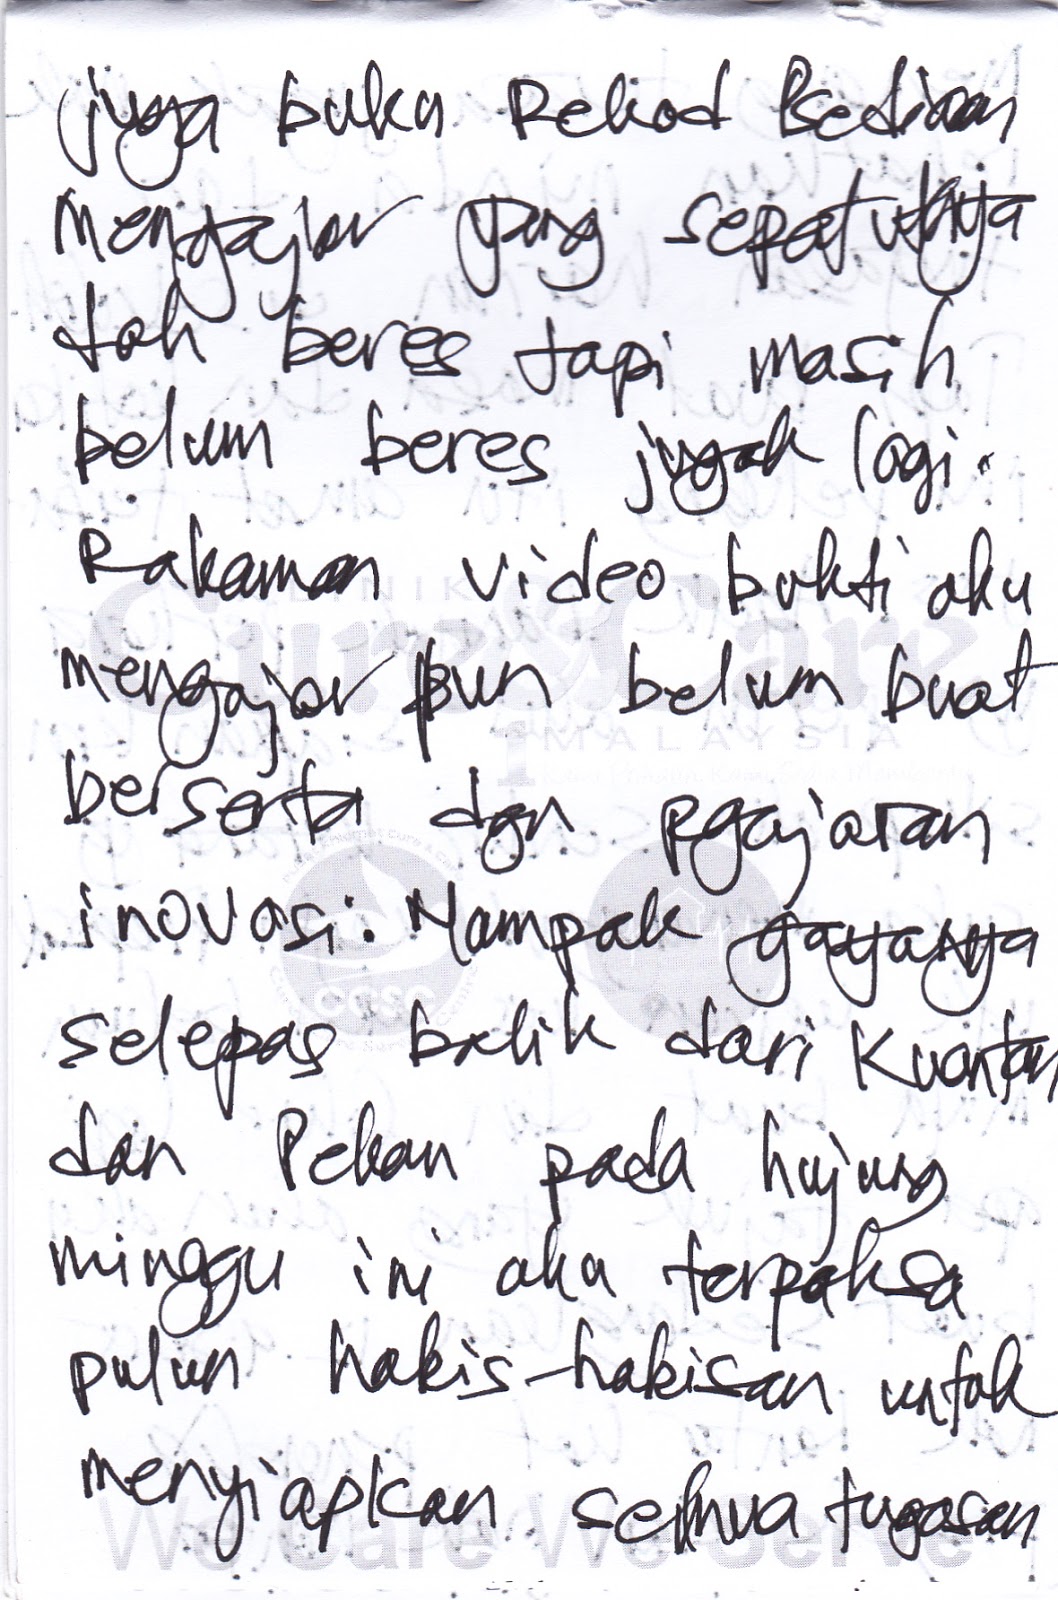 juga buku Rekod Psediaan
mengajar yang sepatutnya
dah beres tapi masih
belum beres jugak lagi.
Rakaman video bukti aku
mengajar pun belum buat
berserta dgn pgajaran
inovasi. Nampak gayanya
selepas balik dari Kuantan
dan Pekan pada hujung
minggu ini aku terpaksa
pulun hakis-hakisan untuk
menyiapkan semua tugasan
KLINIK
Cure&Care
1 MALAYSIA
CCSC
We Care We Serve